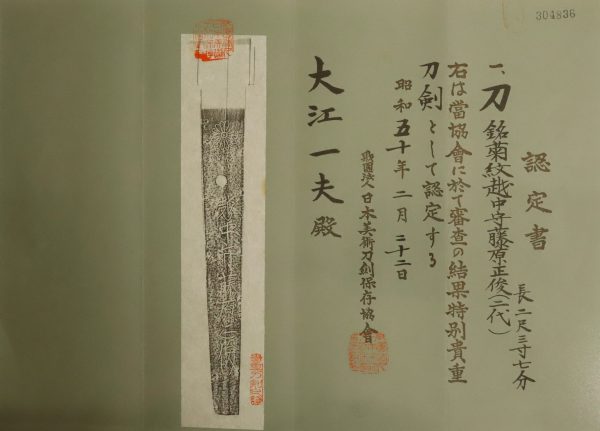 304836
認定書
一、刀 銘菊紋越中守藤原正俊(二代)
長二尺三寸七分
右は當協會に於て審査の結果特別貴重
刀劍として認定する
昭和五十年二月二十二日
財團法人日本美術刀劍保存協會
大江一夫殿